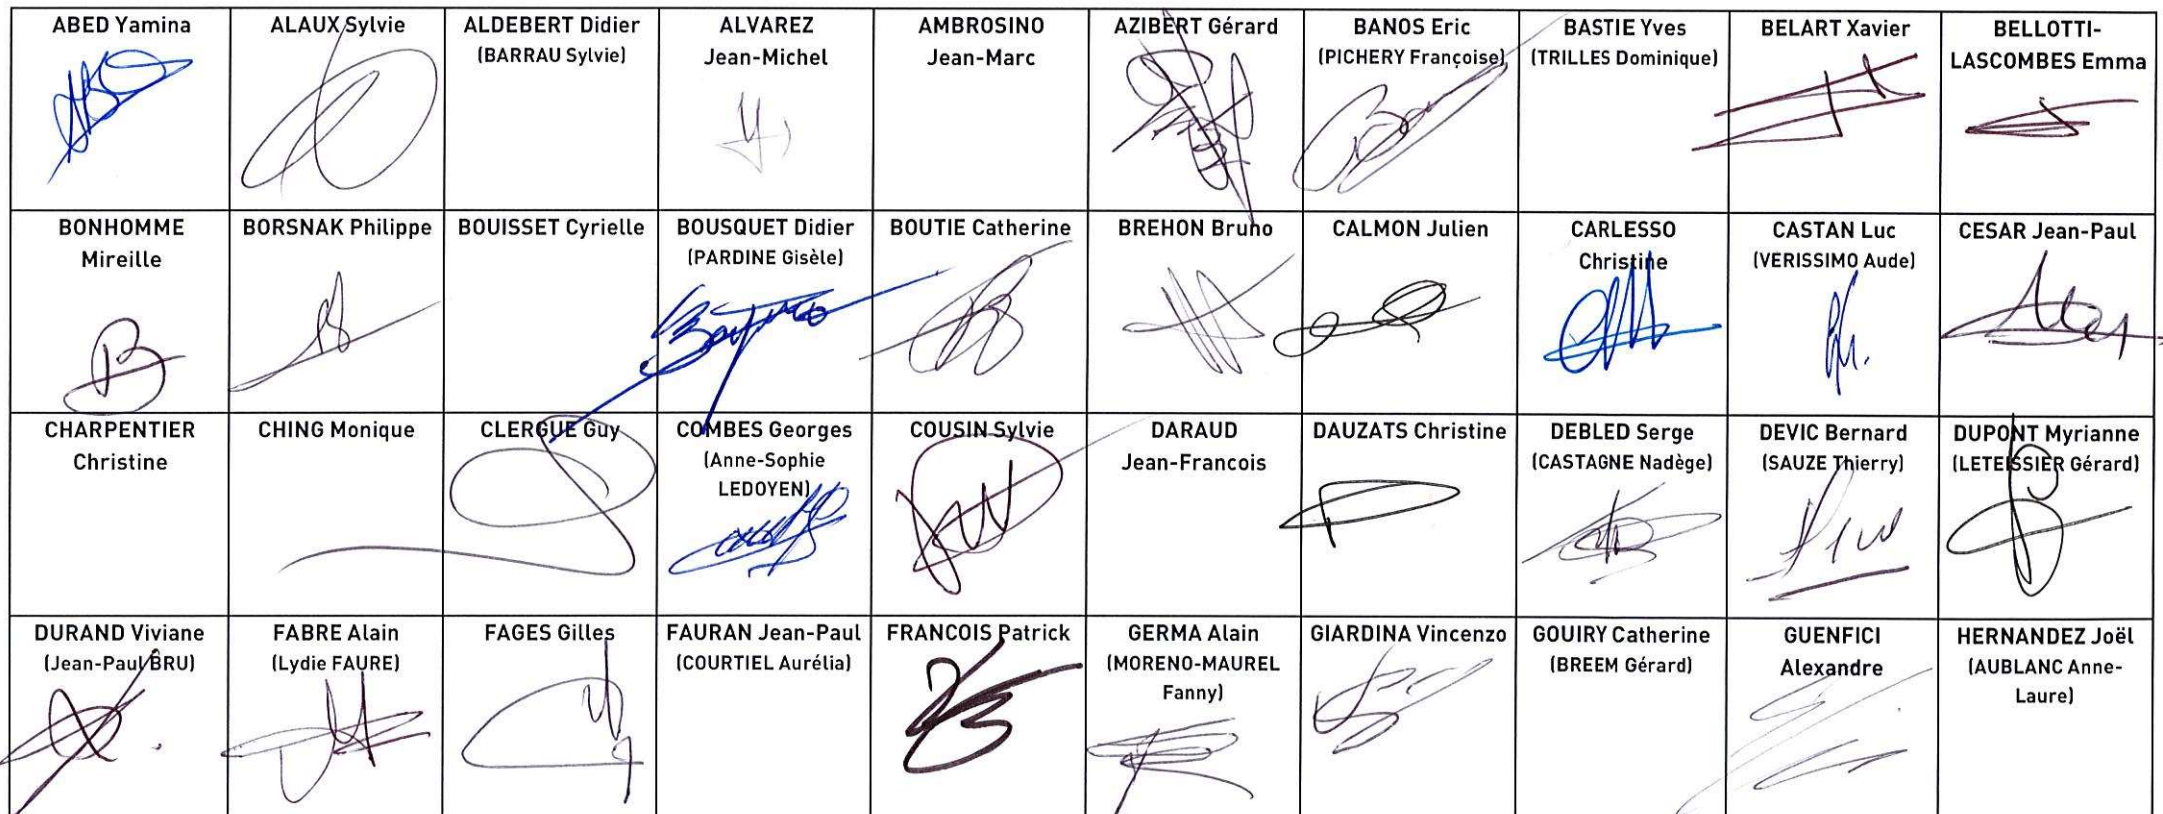 ABED Yamina
ALAUX Sylvie
ALDEBERT Didier
(BARRAU Sylvie)
ALVAREZ
Jean-Michel
AMBROSINO
Jean-Marc
AZIBERT Gérard
BANOS Eric
(PICHERY Françoise)
BASTIE Yves
(TRILLES Dominique)
BELART Xavier
BELLOTTI-
LASCOMBES Emma
BONHOMME
Mireille
BORSNAK Philippe
BOUISSET Cyrielle
BOUSQUET Didier
(PARDINE Gisèle)
BOUTIE Catherine
BREHON Bruno
CALMON Julien
CARLESSO
Christine
CASTAN Luc
(VERISSIMO Aude)
CESAR Jean-Paul
CHARPENTIER
Christine
CHING Monique
CLERGUE Guy
COMBES Georges
(Anne-Sophie
LEDOYEN)
COUSIN Sylvie
DARAUD
Jean-Francois
DAUZATS Christine
DEBLED Serge
(CASTAGNE Nadège)
DEVIC Bernard
(SAUZE Thierry)
DUPONT Myrianne
(LETEISSIER Gérard)
DURAND Viviane
(Jean-Paul BRU)
FABRE Alain
(Lydie FAURE)
FAGES Gilles
FAURAN Jean-Paul
(COURTIEL Aurélia)
FRANCOIS Patrick
GERMA Alain
(MORENO-MAUREL
Fanny)
GIARDINA Vincenzo
GOUIRY Catherine
(BREEM Gérard)
GUENFICI
Alexandre
HERNANDEZ Joël
(AUBLANC Anne-
Laure)